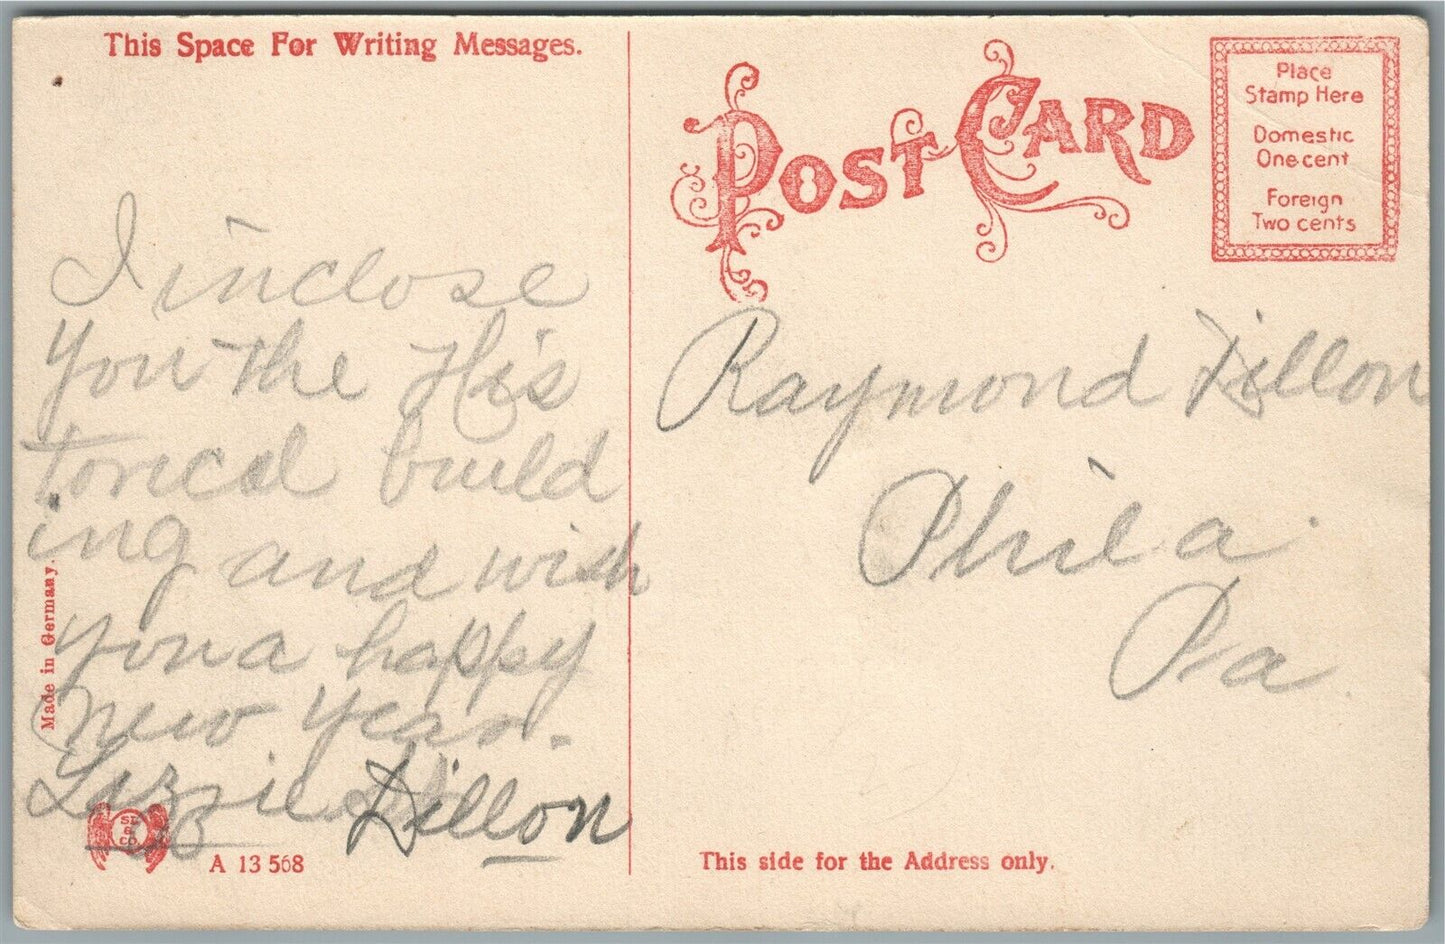 This Space For Writing Messages.
I inclose
you the His
torical build
ing and wish
you a happy
new year.
Lizzie Dillon
Made in Germany.
SL
&
CO
A 13 568
POST CARD
Place
Stamp Here
Domestic
One cent
Foreign
Two cents
Raymond Dillon
Phila
Pa.
This side for the Address only.